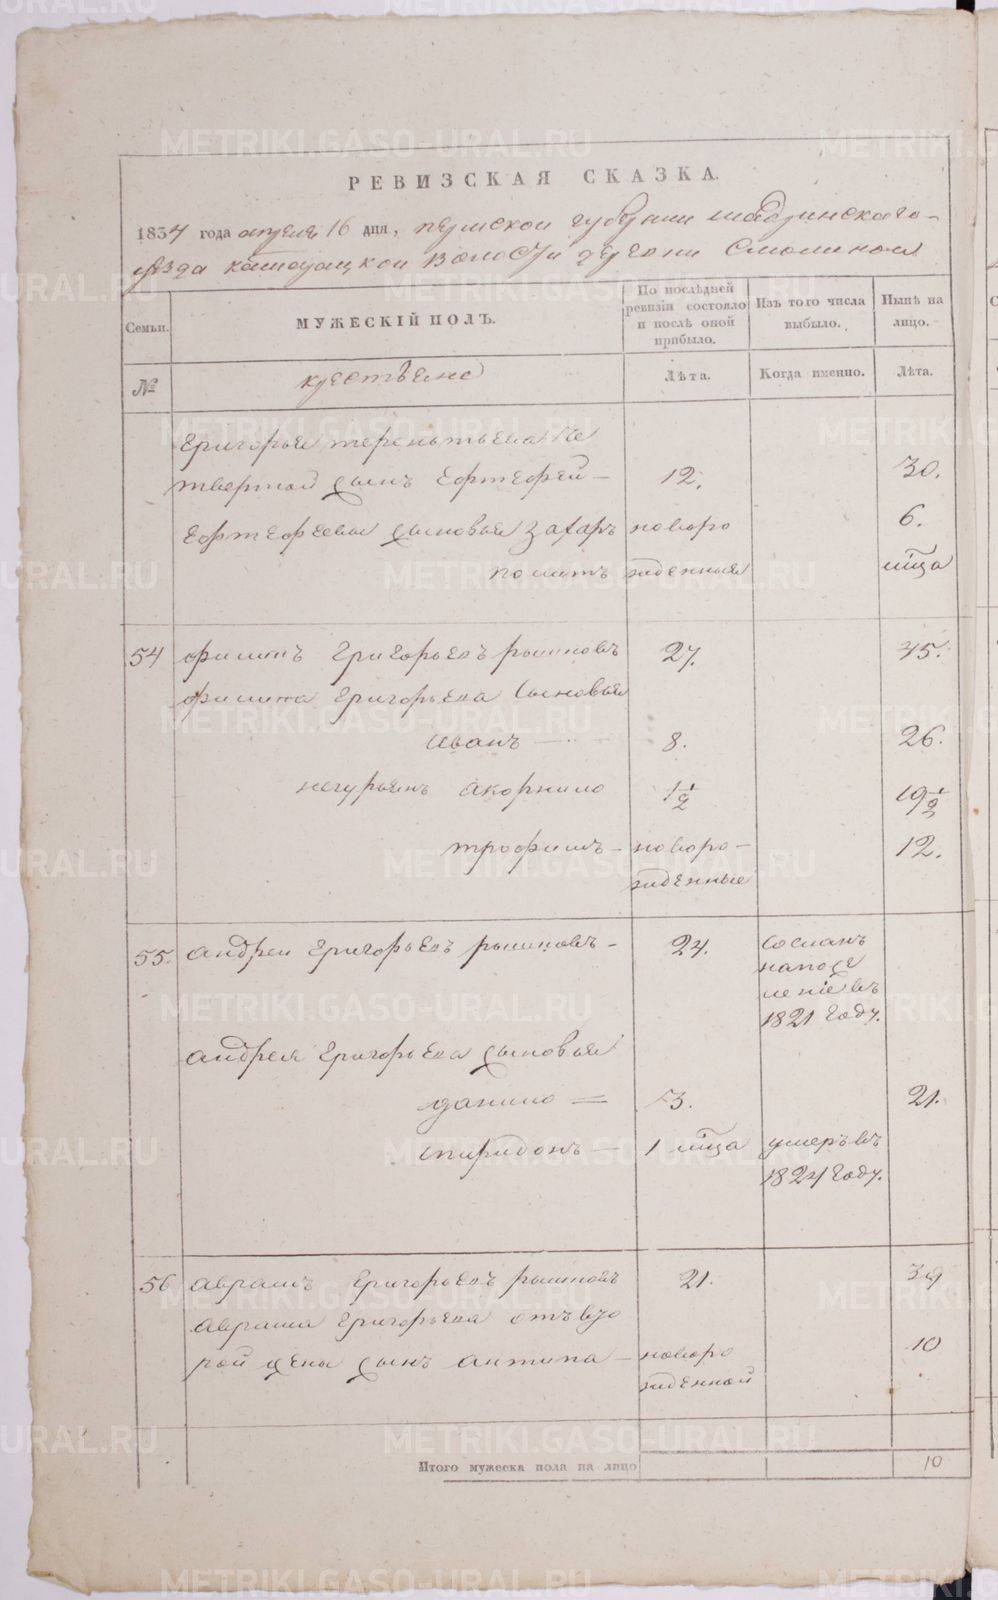 РЕВИЗСКАЯ СКАЗКА.
1834 года апреля 16 дня, пермской губернии шадринскаго
уезда волости деревни Смолиной
Семьи.
МУЖЕСКІЙ ПОЛЪ.
По послѣдней ревизіи состояло и послѣ оной прибыло.
Изъ того числа выбыло.
Нынѣ на лицо.
№
крестьяне
Лѣта.
Когда именно.
Лѣта.
Григорья терентьева че
твертой сынъ Ефтефей 12. 30.
Ефтефеевы сыновья захаръ новоро 6.
жденныя мца
54 филипъ Григорьевъ 27. 45.
филипа Григорьева Сыновья
Иванъ 8. 26.
акорнило 1 1/2 19 1/2
трофимъ новоро- 12.
жденные
55. андреи Григорьевъ 24. Сосланъ
напосе
леніе въ
1821 году.
андрея Григорьева сыновья
данило 3. 21.
спиридонъ 1 мца умеръ въ
1824 году.
56 аврамъ Григорьевъ 21. 39
аврама Григорьева отъ вто
рой жены сынъ антипа новоро 10
жденной
Итого мужеска пола на лицо 10
METRIKI.GASO-URAL.RU